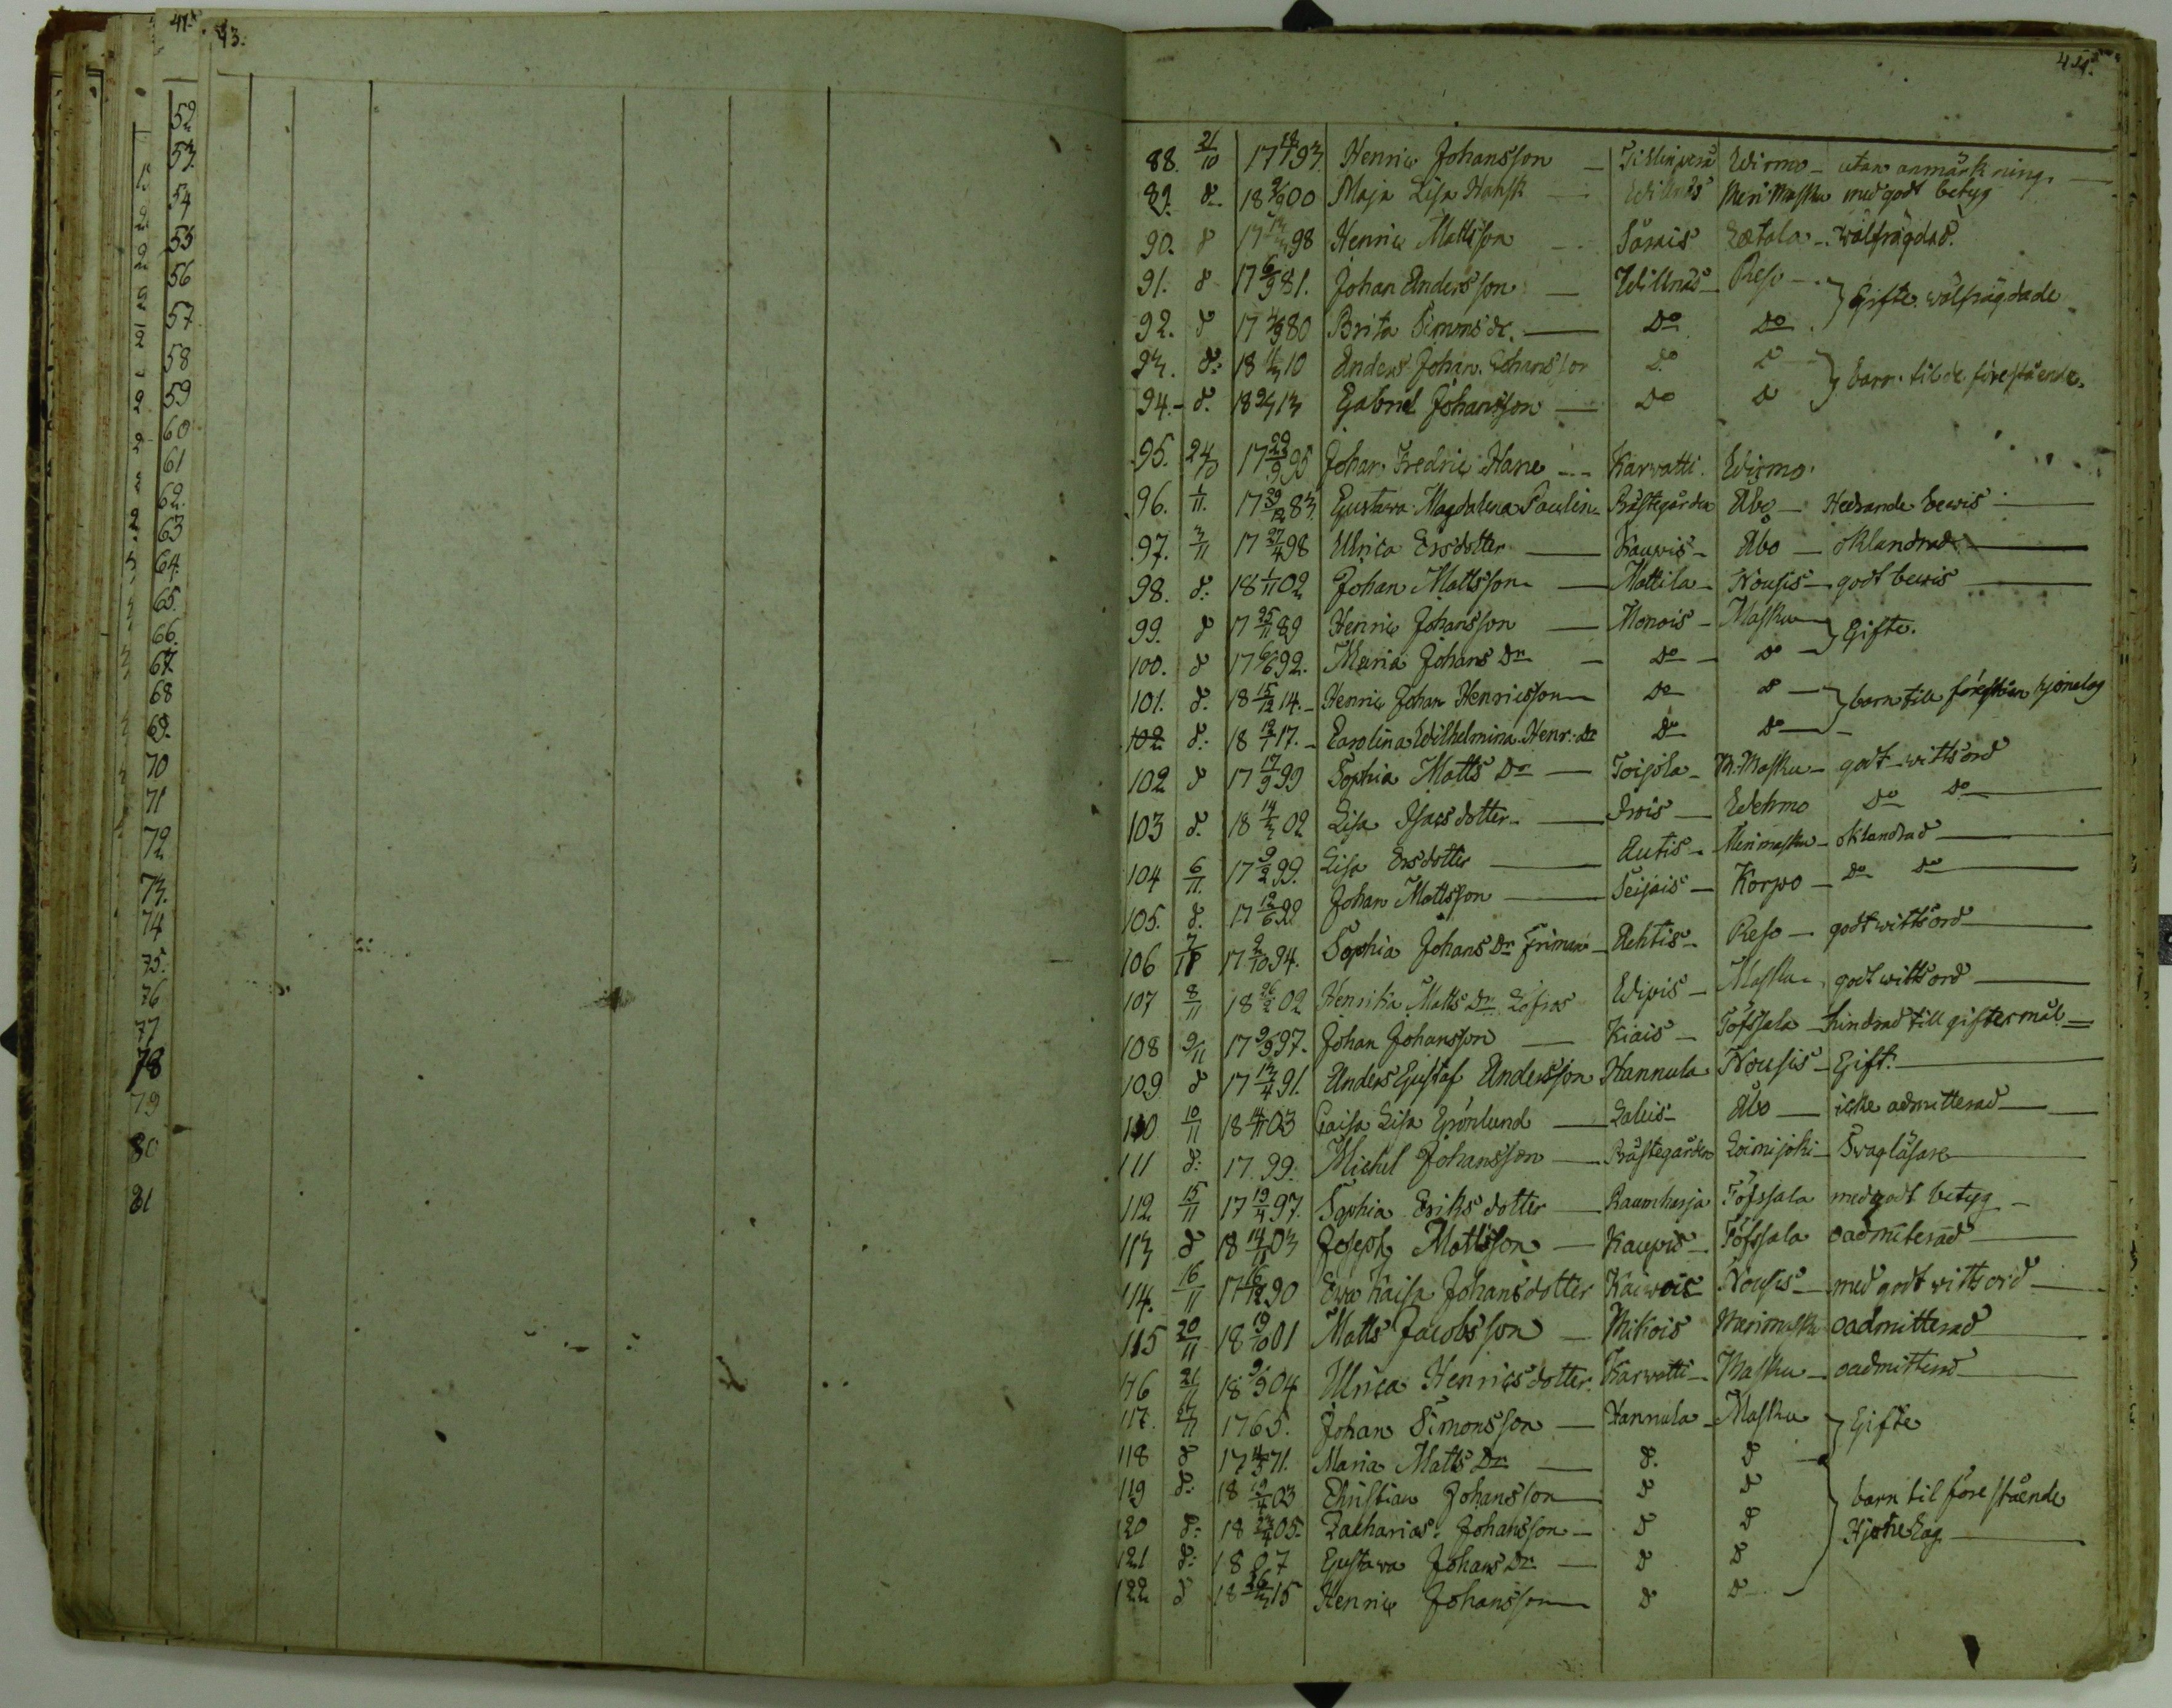 41.
43.
52
53.
54
55
56
57
58
59
60
61
62.
63
64.
65.
66.
67.
68
69.
70
71
72
73.
74
75.
76
77
78
79
80
81
44.
88. 21/10 17 18/1 93. Henric Johansson — Wirmo — utan anmärkning.
89. d. 18 2/9 00 Maja Lisa Hansk — Willnäs Merimasku med godt betyg
90. d 17 98 Henric Mattsson — Särais Letala — wälfrägdad.
91. d 17 6/9 81. Johan Andersson — Willnäs — Reso — } Gifte wälfrägdade
92. d 17 4/9 80 Brita Simons dr. — Do Do
93. d: 18 10 Anders Johan Johansson Do D } barn til de förestående.
94. — d. 18 13 Gabriel Johansson — Do D
95. 24/10 17 29/9 95 Johan Fredric Hane — Karvatti. Wirmo.
96. 1/11. 17 29/12 83. Gustava Magdalena Paulin Prästegården Åbo — Hedrande bewis —
97. 3/11 17 27/4 98 Ulrica Ersdotter — Kauvis — Åbo — oklandrad. —
98. d: 18 1/11 02 Johan Mattsson — Mattila — Nousis — godt bewis —
99. d 17 25/11 89 Henric Johansson — Monois — Masku — } Gifte.
100. d 17 6/6 92. Maria Johans Dr — Do — D —
101. d. 18 15/12 14. — Henric Johan Henricsson — Do d — } barn till förestån hjonelag
102 d: 18 12/1 17. — Carolina Wilhelmina Henr: Dr Do D —
102 d 17 17/9 99 Sophia Matts Dr — Toijola — M. Masku — godt wittsord
103 d. 18 14/3 02 Lisa Isacs dotter — Irois — Wehmo Do Do —
104 6/11. 17 9/2 99. Lisa Ersdotter — Autis — Merimasku — oklandrad —
105. d. 17 12/6 99 Johan Mattsson — Seijais — Korpo — Do Do —
106 7/11 17 2/10 94. Sophia Johans Dr Friman — Ahtis — Reso — godt wittsord —
107 8/11 18 26/2 02 Henrika Matts Dr Löfros Wipis — Masku — godt wittsord —
108 9/11 17 9/9 97. Johan Johansson — Kiais — Töfssala — hindrad till giftermål —
109 d 17 13/4 91. Anders Gustaf Andersson Hannula Nousis — Gift. —
110 10/11 18 14/11 03 Caisa Lisa Grönlund — Laleis — Åbo — icke admitterad —
111 d: 17.99. Michel Johansson — Prästegården Loimijoki — Swagläsare —
112 15/11 17 19/4 97. Sophia Eriks dotter — Raumharja Töfssala med godt betyg —
113 d 18 14/11 03 Joseph Mattsson — Kaupis — Töfssala oadmiterad —
114. 16/11 17 16/12 90 Ewa Kaisa Johansdotter Kaiwois Nousis — med godt wittsord —
115 20/11 18 19/10 01 Matts Jacobsson — Mikois Merimasku oadmitterad —
116 21/11 18 9/9 04 Ulrica Henricsdotter. Karvatti — Masku — oadmitterad —
117. 27/11 1765. Johan Simonsson — Hannula — Masku } Gifte
118 d 17 71. Maria Matts Dr — d. d —
119 d: 18 19/4 03 Christian Johansson — d d } barn til förestående
120 d: 18 23/4 05. Zacharias Johansson — d d Hjonelag —
121 d: 1807 Gustava Johans Dr — d d
122 d 18 26/3 15 Henric Johansson — d d —